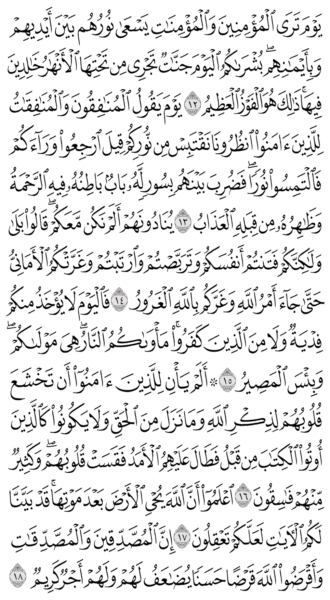 يَوْمَ تَرَى ٱلْمُؤْمِنِينَ وَٱلْمُؤْمِنَٰتِ يَسْعَىٰ نُورُهُم بَيْنَ أَيْدِيهِمْ
وَبِأَيْمَٰنِهِمۖ بُشْرَىٰكُمُ ٱلْيَوْمَ جَنَّٰتٌ تَجْرِى مِن تَحْتِهَا ٱلْأَنْهَٰرُ خَٰلِدِينَ
فِيهَاۚ ذَٰلِكَ هُوَ ٱلْفَوْزُ ٱلْعَظِيمُ ١٢ يَوْمَ يَقُولُ ٱلْمُنَٰفِقُونَ وَٱلْمُنَٰفِقَٰتُ
لِلَّذِينَ ءَامَنُوا۟ ٱنظُرُونَا نَقْتَبِسْ مِن نُّورِكُمْ قِيلَ ٱرْجِعُوا۟ وَرَآءَكُمْ
فَٱلْتَمِسُوا۟ نُورًاۖ فَضُرِبَ بَيْنَهُم بِسُورٍ لَّهُۥ بَابٌۢ بَاطِنُهُۥ فِيهِ ٱلرَّحْمَةُ
وَظَٰهِرُهُۥ مِن قِبَلِهِ ٱلْعَذَابُ ١٣ يُنَادُونَهُمْ أَلَمْ نَكُن مَّعَكُمْۖ قَالُوا۟ بَلَىٰ
وَلَٰكِنَّكُمْ فَتَنتُمْ أَنفُسَكُمْ وَتَرَبَّصْتُمْ وَٱرْتَبْتُمْ وَغَرَّتْكُمُ ٱلْأَمَانِىُّ
حَتَّىٰ جَآءَ أَمْرُ ٱللَّهِ وَغَرَّكُم بِٱللَّهِ ٱلْغَرُورُ ١٤ فَٱلْيَوْمَ لَا يُؤْخَذُ مِنكُمْ
فِدْيَةٌ وَلَا مِنَ ٱلَّذِينَ كَفَرُوا۟ۚ مَأْوَىٰكُمُ ٱلنَّارُۖ هِىَ مَوْلَىٰكُمْۖ
وَبِئْسَ ٱلْمَصِيرُ ١٥ ۞ أَلَمْ يَأْنِ لِلَّذِينَ ءَامَنُوٓا۟ أَن تَخْشَعَ
قُلُوبُهُمْ لِذِكْرِ ٱللَّهِ وَمَا نَزَلَ مِنَ ٱلْحَقِّ وَلَا يَكُونُوا۟ كَٱلَّذِينَ
أُوتُوا۟ ٱلْكِتَٰبَ مِن قَبْلُ فَطَالَ عَلَيْهِمُ ٱلْأَمَدُ فَقَسَتْ قُلُوبُهُمْۖ وَكَثِيرٌ
مِّنْهُمْ فَٰسِقُونَ ١٦ ٱعْلَمُوٓا۟ أَنَّ ٱللَّهَ يُحْىِ ٱلْأَرْضَ بَعْدَ مَوْتِهَاۚ قَدْ بَيَّنَّا
لَكُمُ ٱلْءَايَٰتِ لَعَلَّكُمْ تَعْقِلُونَ ١٧ إِنَّ ٱلْمُصَّدِّقِينَ وَٱلْمُصَّدِّقَٰتِ
وَأَقْرَضُوا۟ ٱللَّهَ قَرْضًا حَسَنًا يُضَٰعَفُ لَهُمْ وَلَهُمْ أَجْرٌ كَرِيمٌ ١٨